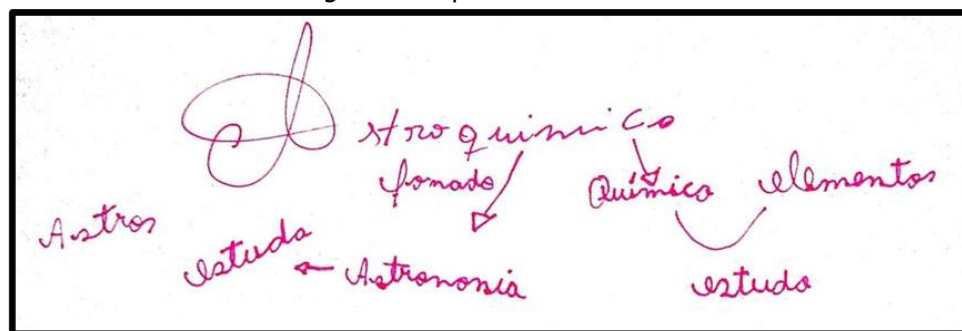 Astroquímica
fomado
Química elementos
Astros estuda Astronomia estuda